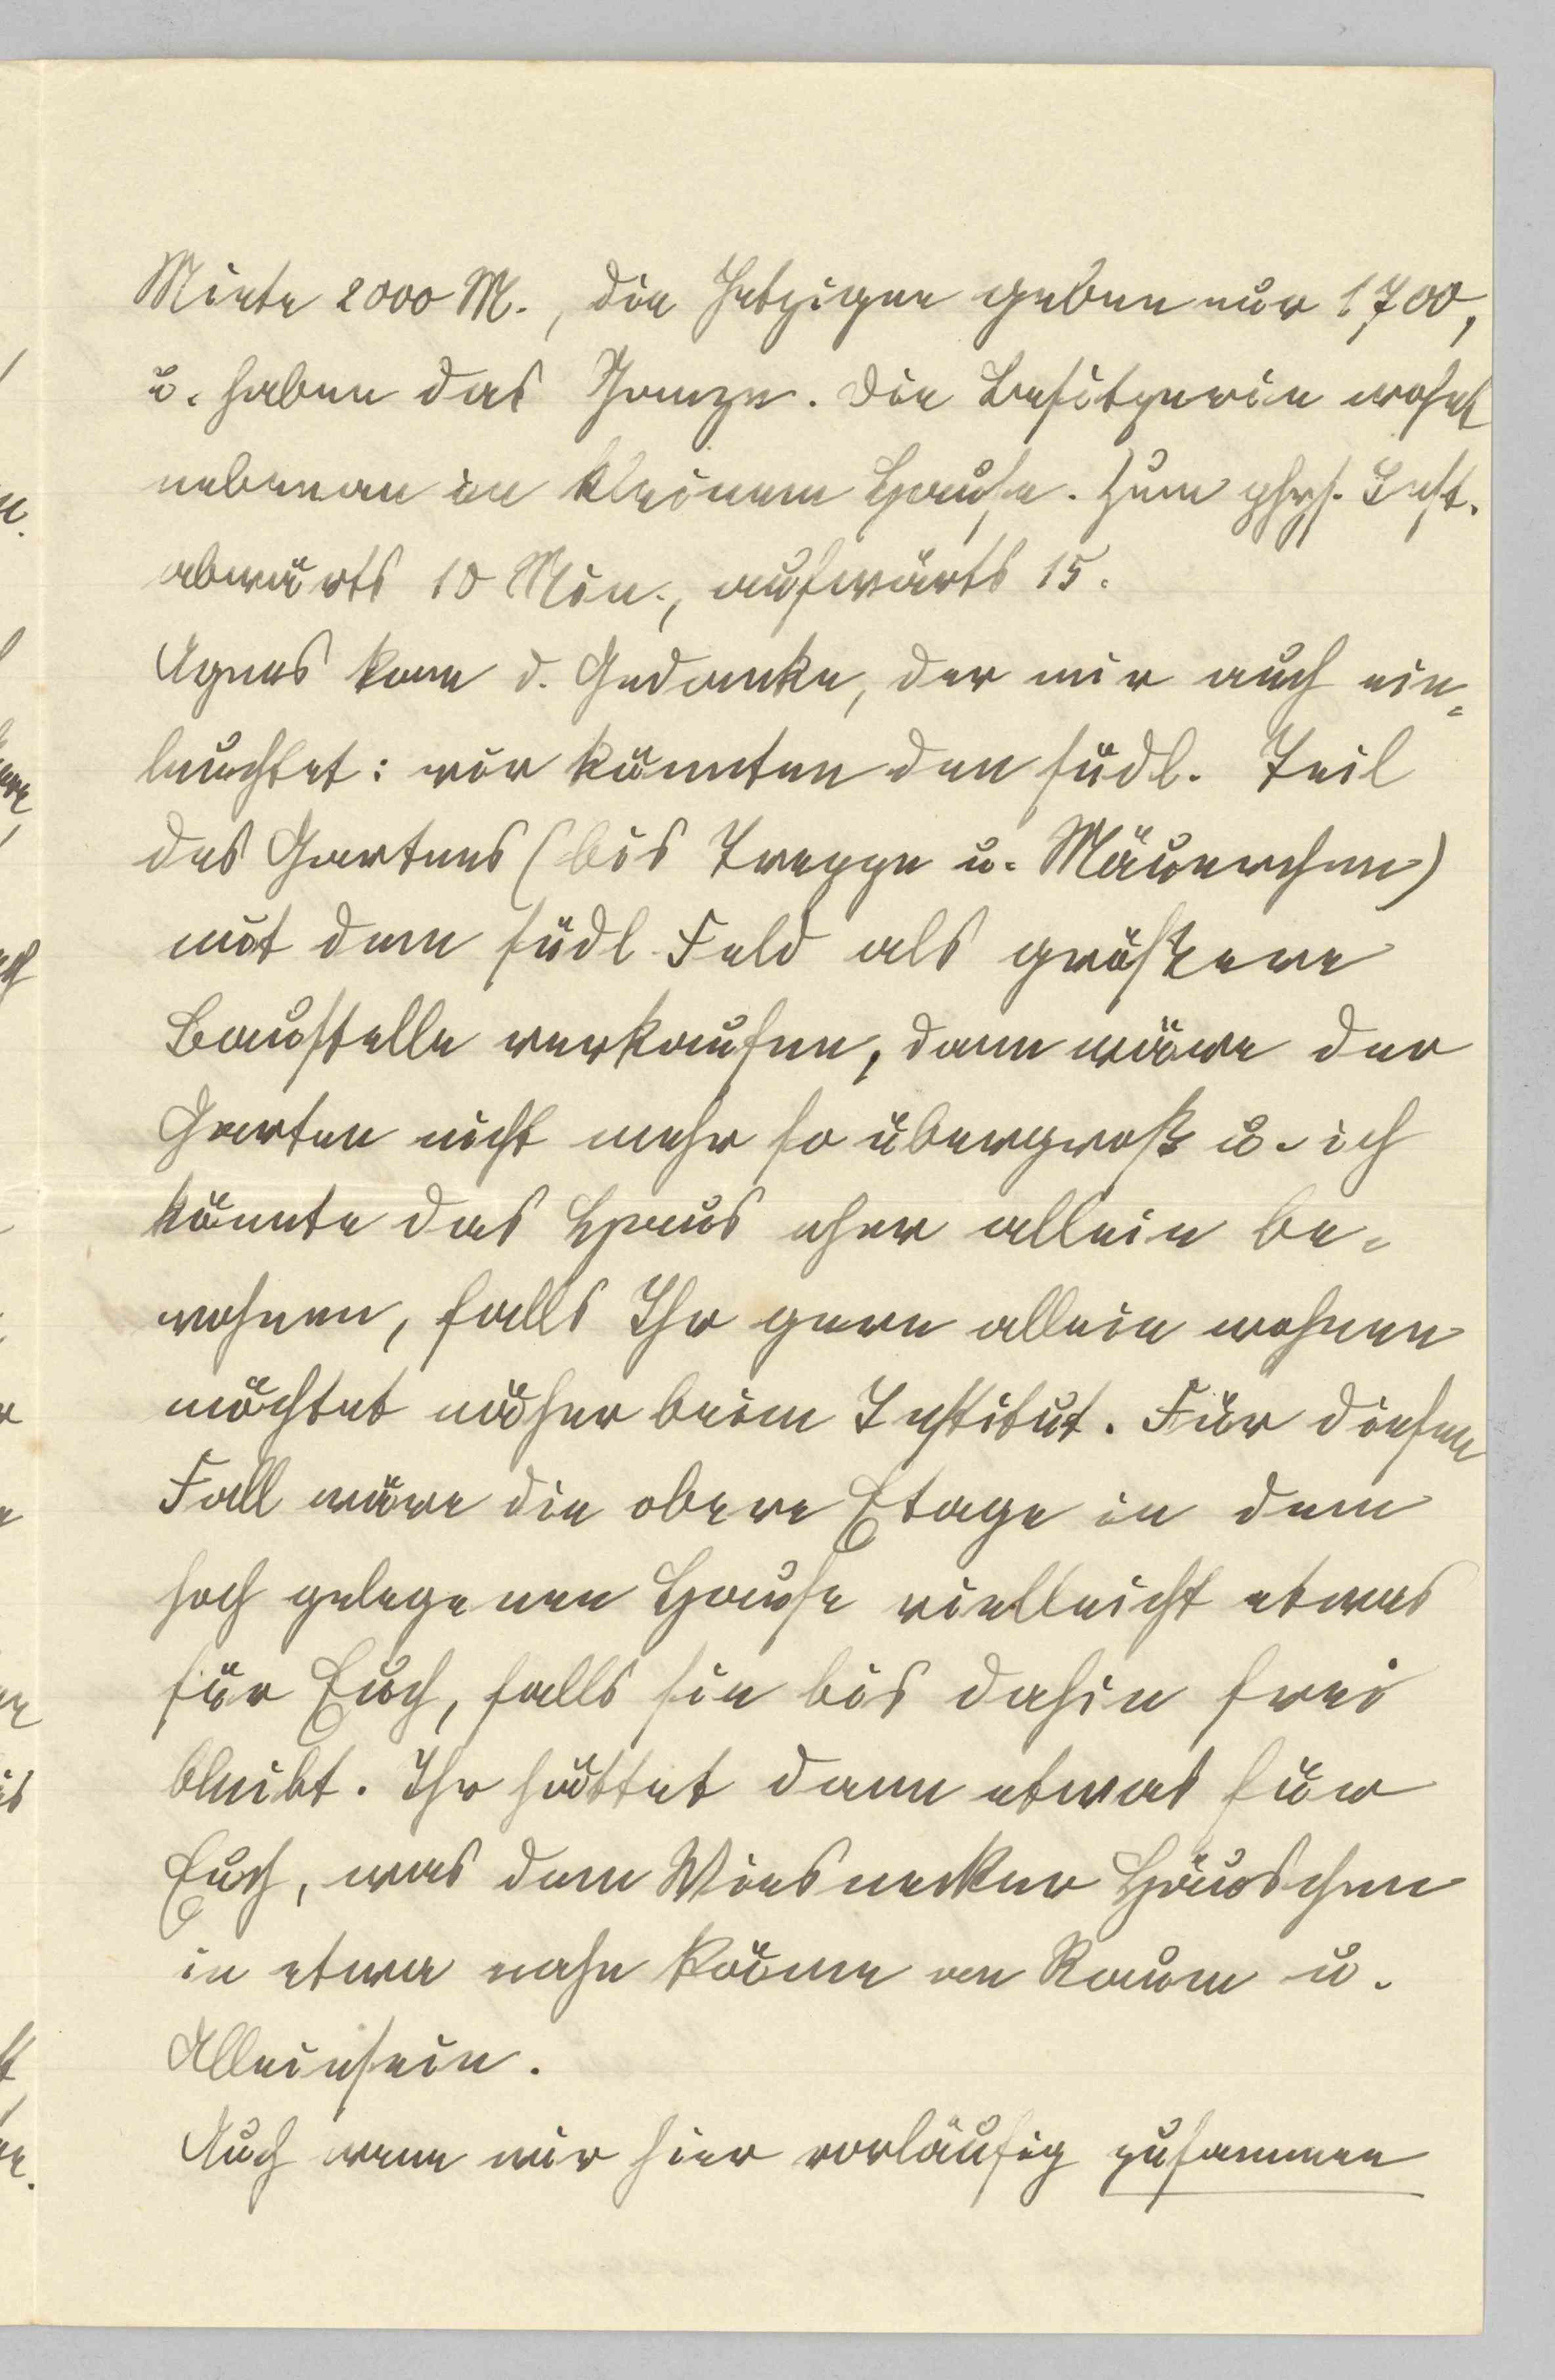 Miete 2000 M., die Jetzigen geben nur 1700,
u. haben das Ganze. Die Besitzerin wohnt
nebenan in kleinem Hause. Zum phys. Inst.
abwärts 10 Min., aufwärts 15.
Agnes kam d. Gedanke, der mir auch ein-
leuchtet: wir könnten den südl. Teil
des Gartens (bis Treppe u. Mäuerchen)
mit dem südl. Feld als größere
Baustelle verkaufen, dann wäre der
Garten nicht mehr so übergroß u. ich
könnte das Haus eher allein be-
wohnen, falls Ihr gern allein wohnen
möchtet näher beim Institut. Für diesen
Fall wäre die obere Etage in dem
hoch gelegenen Hause vielleicht etwas
für Euch, falls sie bis dahin frei
bleibt. Ihr hättet dann etwas für
Euch, was dem Wiesnecker Häuschen
in etwa nahe käme an Raum u.
Alleinsein.
Auch wenn wir hier vorläufig zusammen